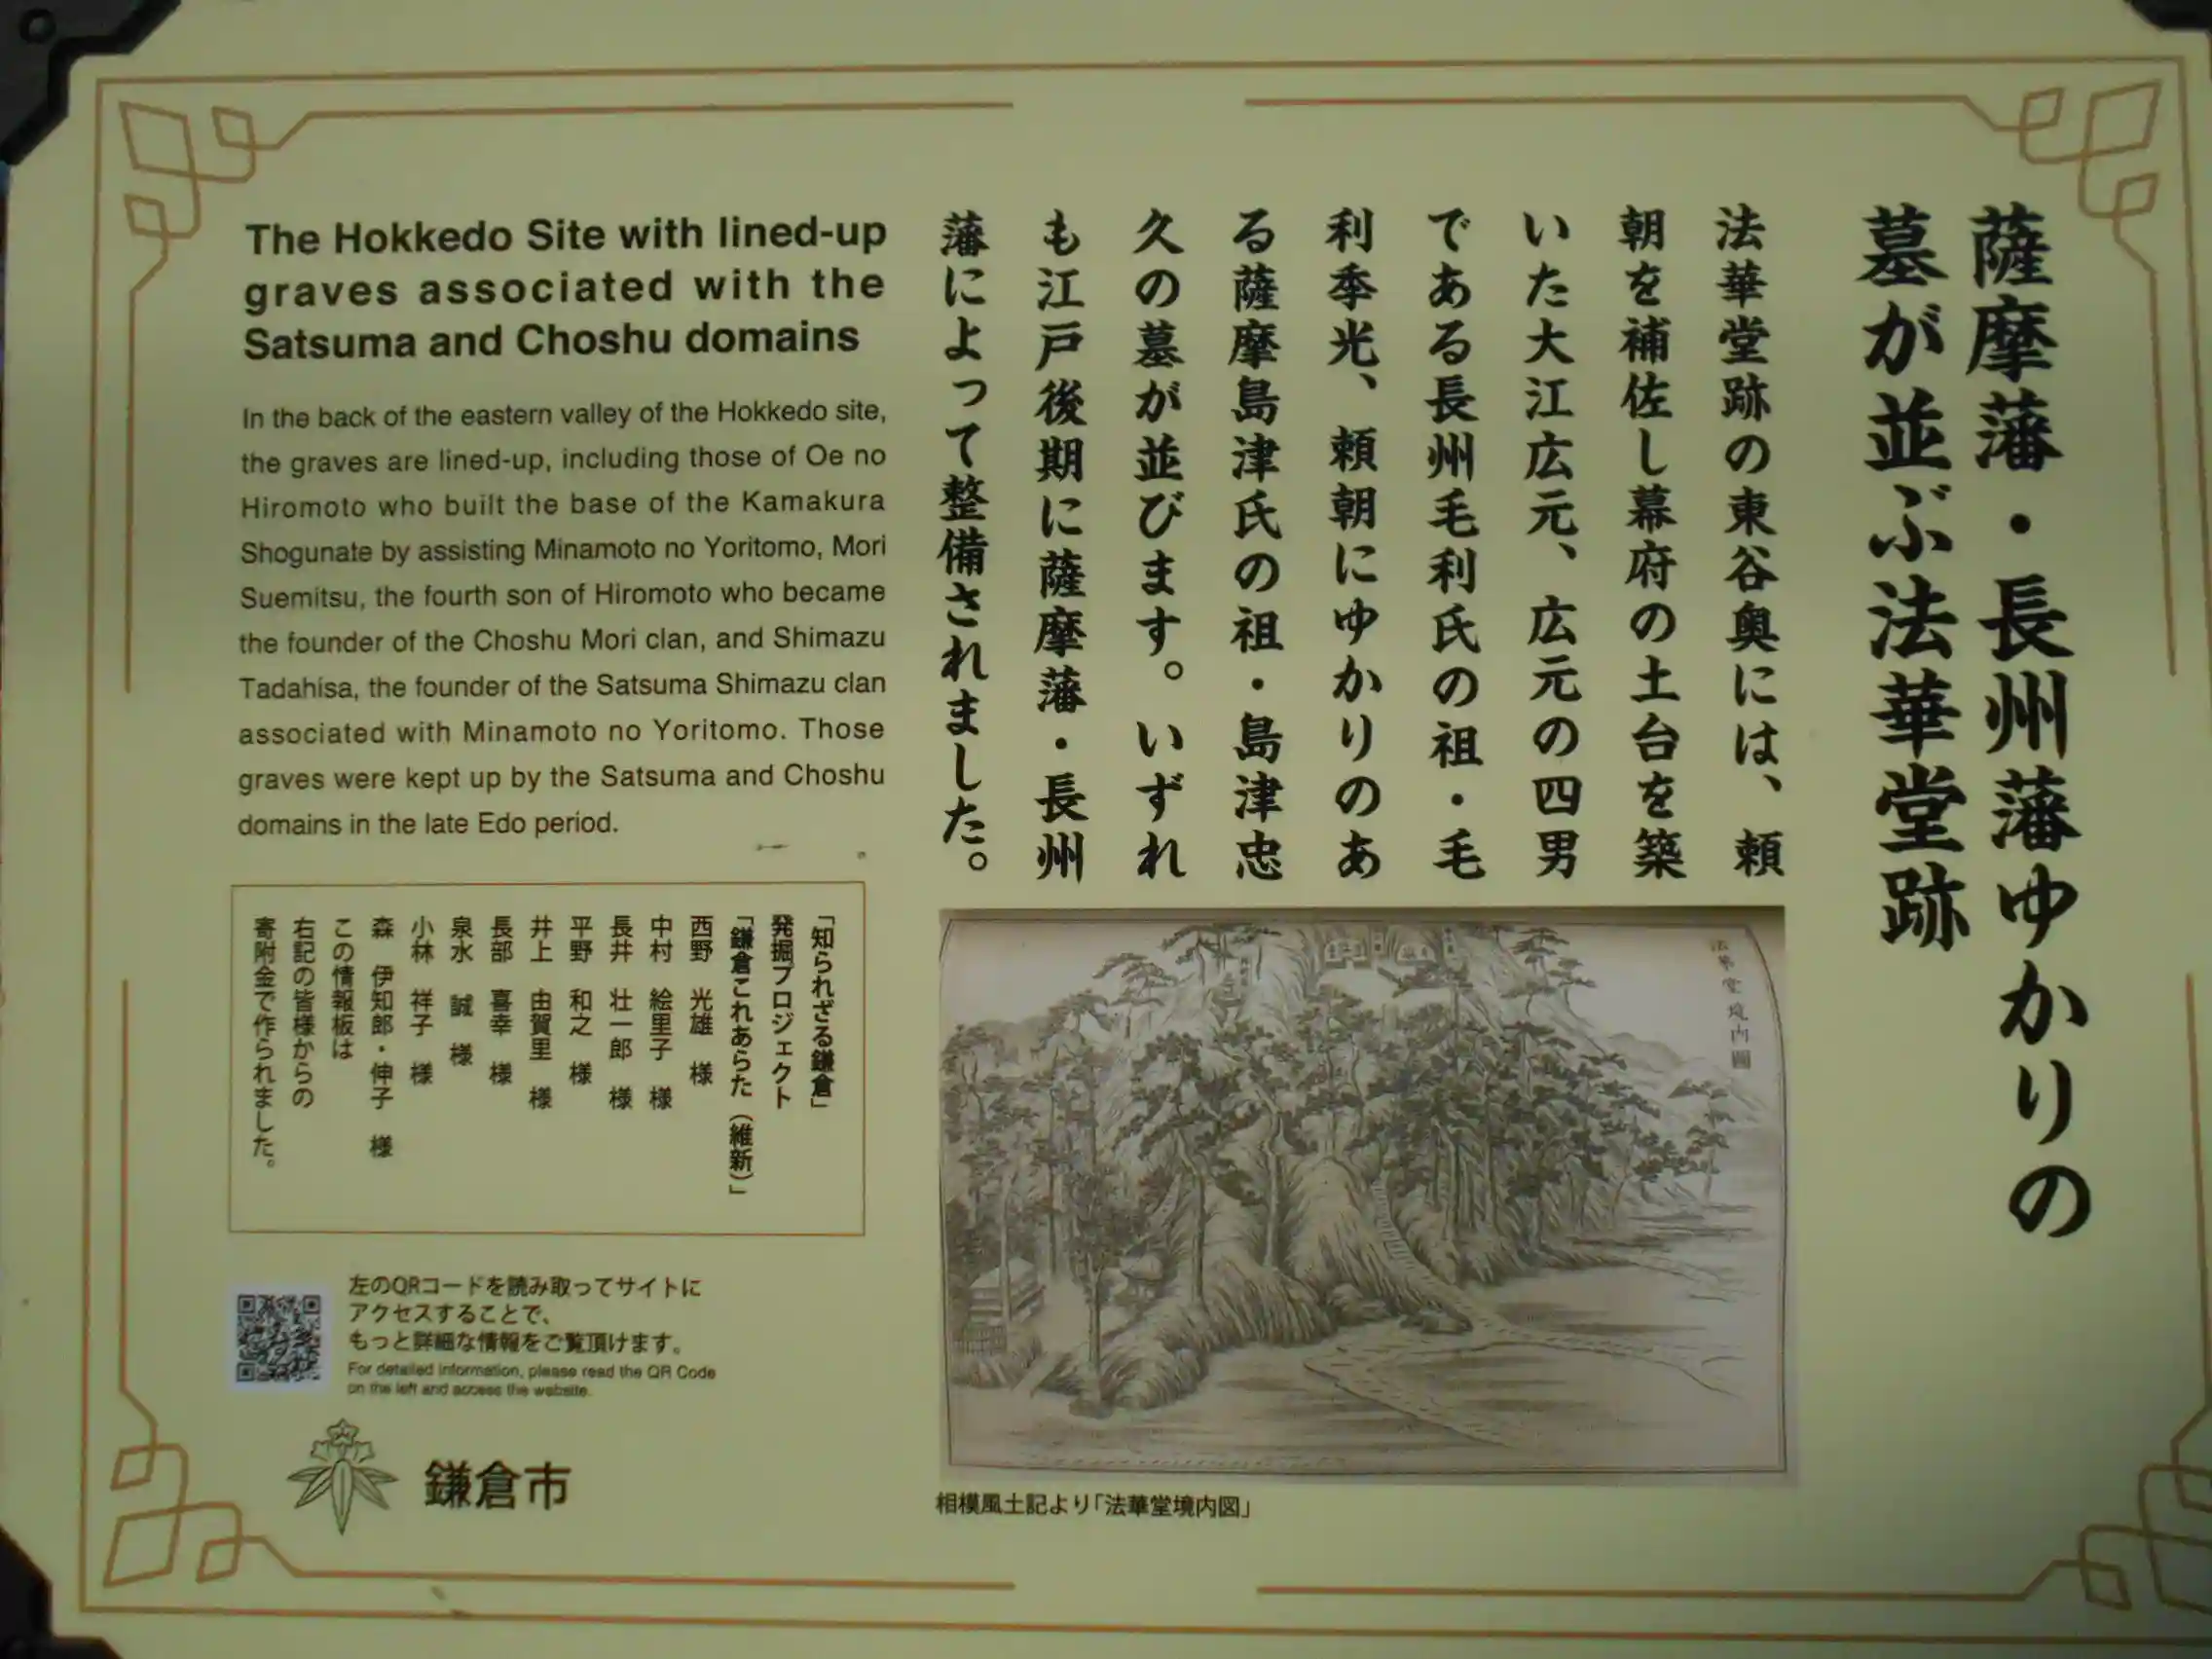 薩摩藩・長州藩ゆかりの
墓が並ぶ法華堂跡
法華堂跡の東谷奥には、頼
朝を補佐し幕府の土台を築
いた大江広元、広元の四男
である長州毛利氏の祖・毛
利季光、頼朝にゆかりのあ
る薩摩島津氏の祖・島津忠
久の墓が並びます。いずれ
も江戸後期に薩摩藩・長州
藩によって整備されました。
The Hokkedo Site with lined-up
graves associated with the
Satsuma and Choshu domains
In the back of the eastern valley of the Hokkedo site,
the graves are lined-up, including those of Oe no
Hiromoto who built the base of the Kamakura
Shogunate by assisting Minamoto no Yoritomo, Mori
Suemitsu, the fourth son of Hiromoto who became
the founder of the Choshu Mori clan, and Shimazu
Tadahisa, the founder of the Satsuma Shimazu clan
associated with Minamoto no Yoritomo. Those
graves were kept up by the Satsuma and Choshu
domains in the late Edo period.
法華堂境内圖
相模風土記より「法華堂境内図」
「知られざる鎌倉」
発掘プロジェクト
「鎌倉これあらた（維新）」
西野 光雄 様
中村 絵里子 様
長井 壮一郎 様
平野 和之 様
井上 由賀里 様
長部 喜幸 様
泉水 誠 様
小林 祥子 様
森 伊知郎・伸子 様
この情報板は
右記の皆様からの
寄附金で作られました。
左のQRコードを読み取ってサイトに
アクセスすることで、
もっと詳細な情報をご覧頂けます。
For detailed information, please read the QR Code
on the left and access the website.
鎌倉市